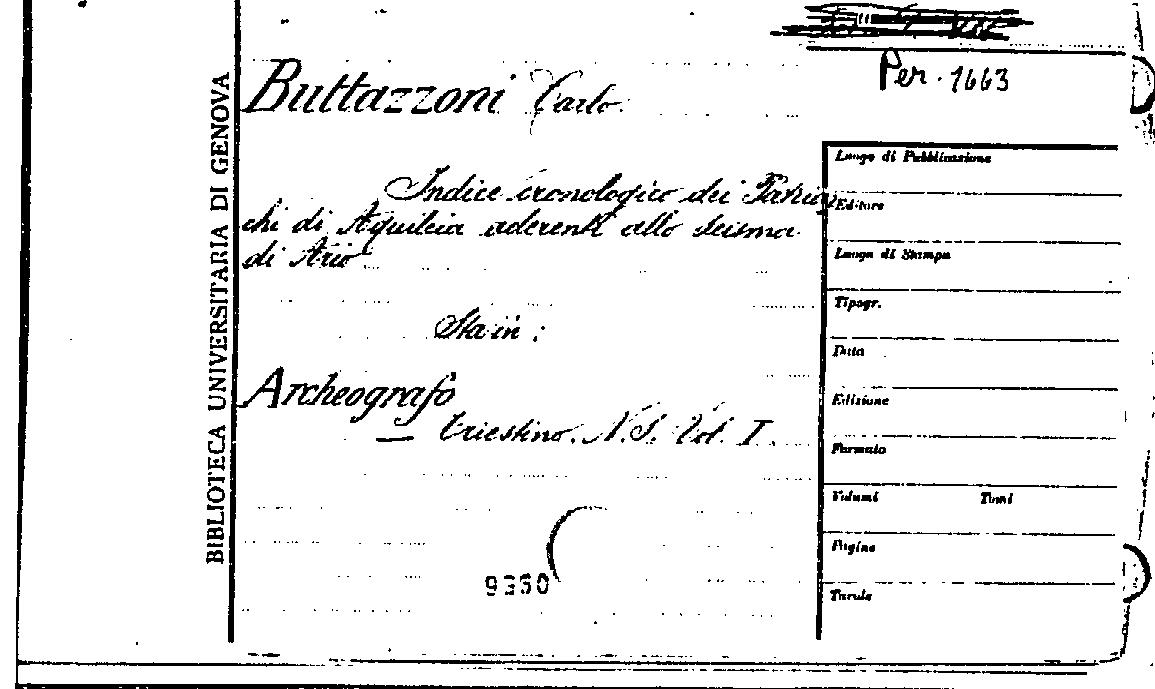 BIBLIOTECA UNIVERSITARIA DI GENOVA
Per. 1663
Buttazzoni Carlo.
Indice cronologico dei Patriar
chi di Aquileia aderenti allo scisma
di Ario
Sta in :
Archeografo
Triestino. N. S. Vol. I.
Luogo di Pubblicazione
Editore
Luogo di Stampa
Tipogr.
Data
Edizione
Formato
Volumi Tomi
Pagine
Tavole